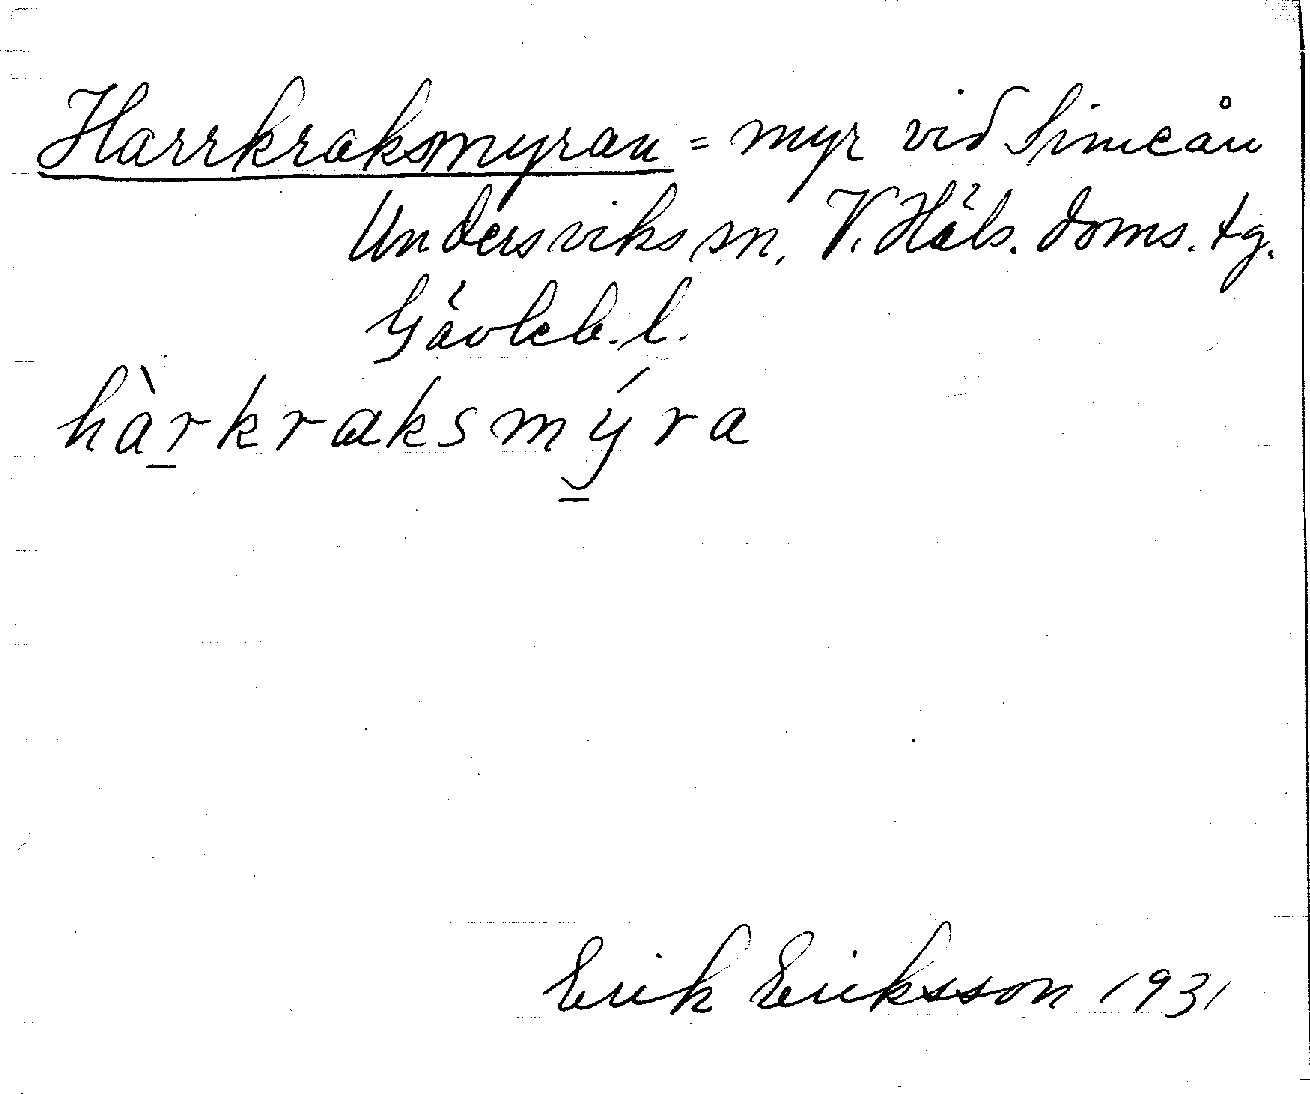 Harrkraksmyran = myr vid Simeån
Undersviks sn, V. Häls. doms. tg.
Gävleb. l.
hàrkraksmýra
Erik Eriksson 1931